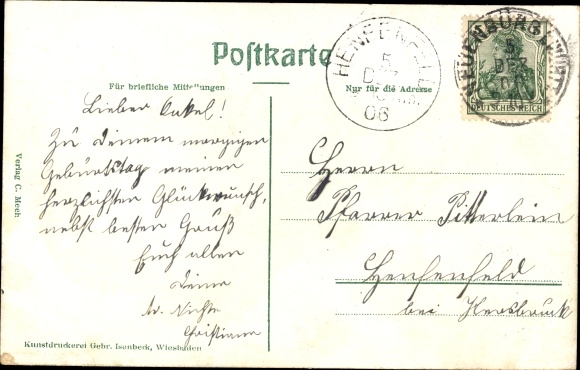 Postkarte
Für briefliche Mitteilungen
Nur für die Adresse
Lieber Onkel!
Zu Deinem morgigen
Geburtstag meinen
herzlichsten Glückwunsch,
nebst besten Gruß
Euch allen
Deine
tr. Nichte
Christiana
Herrn
Pfarrer Pitterlein
Henfenfeld
bei Hersbruck
HENFENFELD
5
DEZ
06
NEUENBÜRG
5
DEZ
06
DEUTSCHES REICH
Verlag C. Mech
Kunstdruckerei Gebr. Isenbeck, Wiesbaden